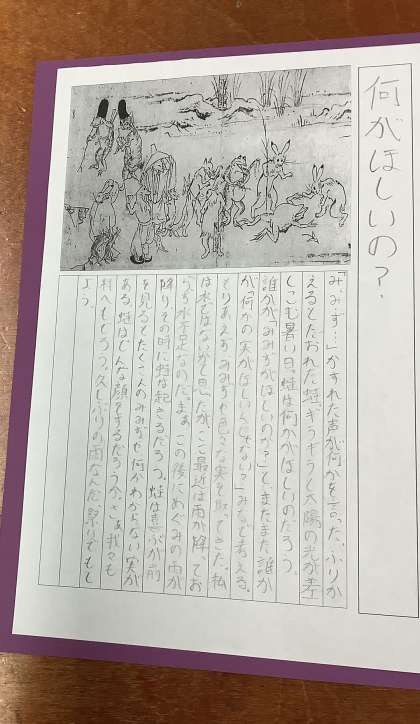 何がほしいの？
「みみず…」かすれた声が何かを言った。ふりか
えるとたおれた蛙。ギラギラと太陽の光が差
しこむ暑い日。蛙は何がほしいのだろう。
誰かが「みみずがほしいのか？」と、またまた誰か
が「何かの実がほしいんじゃない？」みなで考える。
とりあえずみみずや色々な実を取ってきた。私
は水ではないかと思ったが、ここ最近は雨が降ってお
らず水不足なのだ。まぁ、この後にめぐみの雨が
降りその時に蛙は起きるだろう。蛙は喜ぶが前
を見るとたくさんのみみずや何かわからない実が
ある。蛙はどんな顔をするだろうか。さぁ我々も
村へもどろう。久しぶりの雨なんだ、祭りでもし
よう。